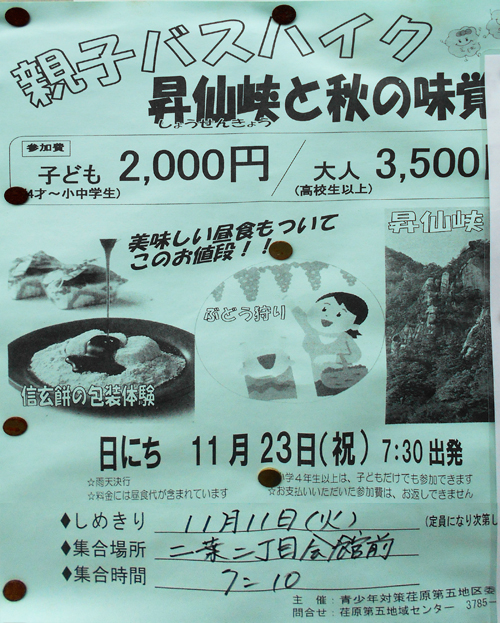 親子バスハイク
昇仙峡と秋の味覚
しょうせんきょう
参加費
子ども 2,000円 / 大人 3,500
(4才～小中学生) (高校生以上)
美味しい昼食もついて
このお値段！！
昇仙峡
ぶどう狩り
信玄餅の包装体験
日にち 11月23日(祝) 7:30出発
☆雨天決行
学4年生以上は、子どもだけでも参加できます
☆料金には昼食代が含まれています
☆お支払いいただいた参加費は、お返しできません
◆しめきり 11月11日(火) (定員になり次第し
◆集合場所 二葉二丁目会館前
◆集合時間 7=10
主 催：青少年対策荏原第五地区委
問合せ：荏原第五地域センター 3785-